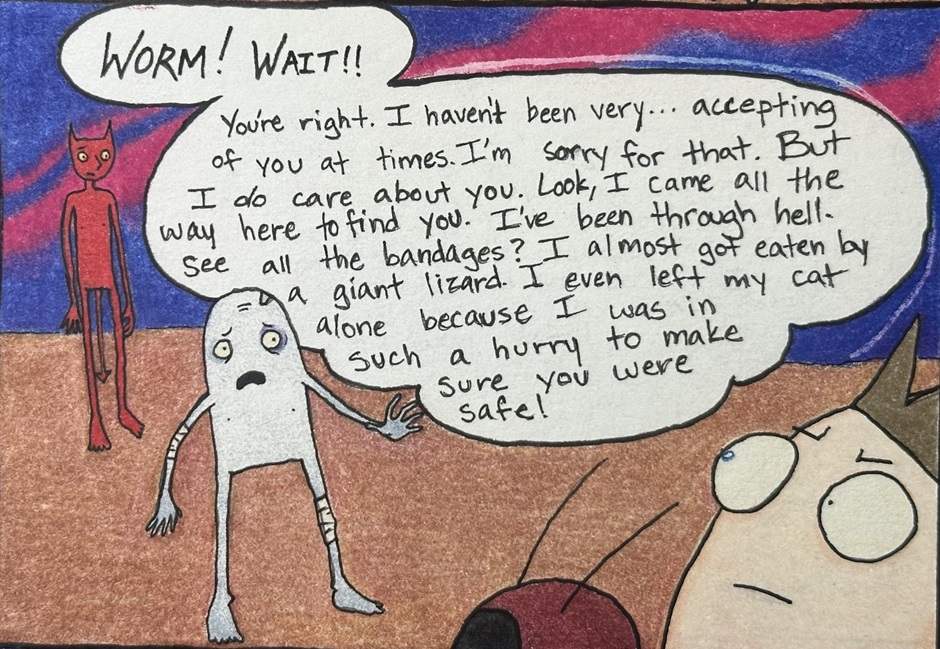 WORM! WAIT!!
You're right. I haven't been very... accepting
of you at times. I'm sorry for that. But
I do care about you. Look, I came all the
way here to find you. I've been through hell.
See all the bandages? I almost got eaten by
a giant lizard. I even left my cat
alone because I was in
such a hurry to make
sure you were
safe!